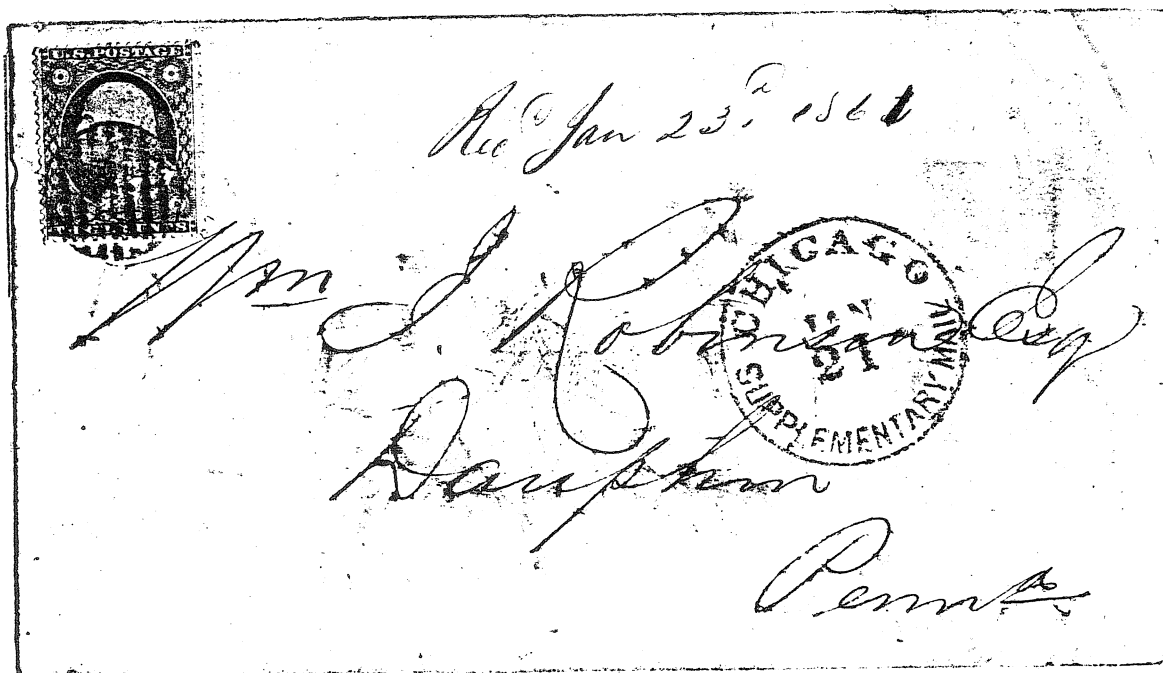 U.S. POSTAGE
Recd Jan 23d, 1861
Wm J. Robinson Esq
CHICAGO
JAN
21
SUPPLEMENTARY MAIL
Dauphin
Penna